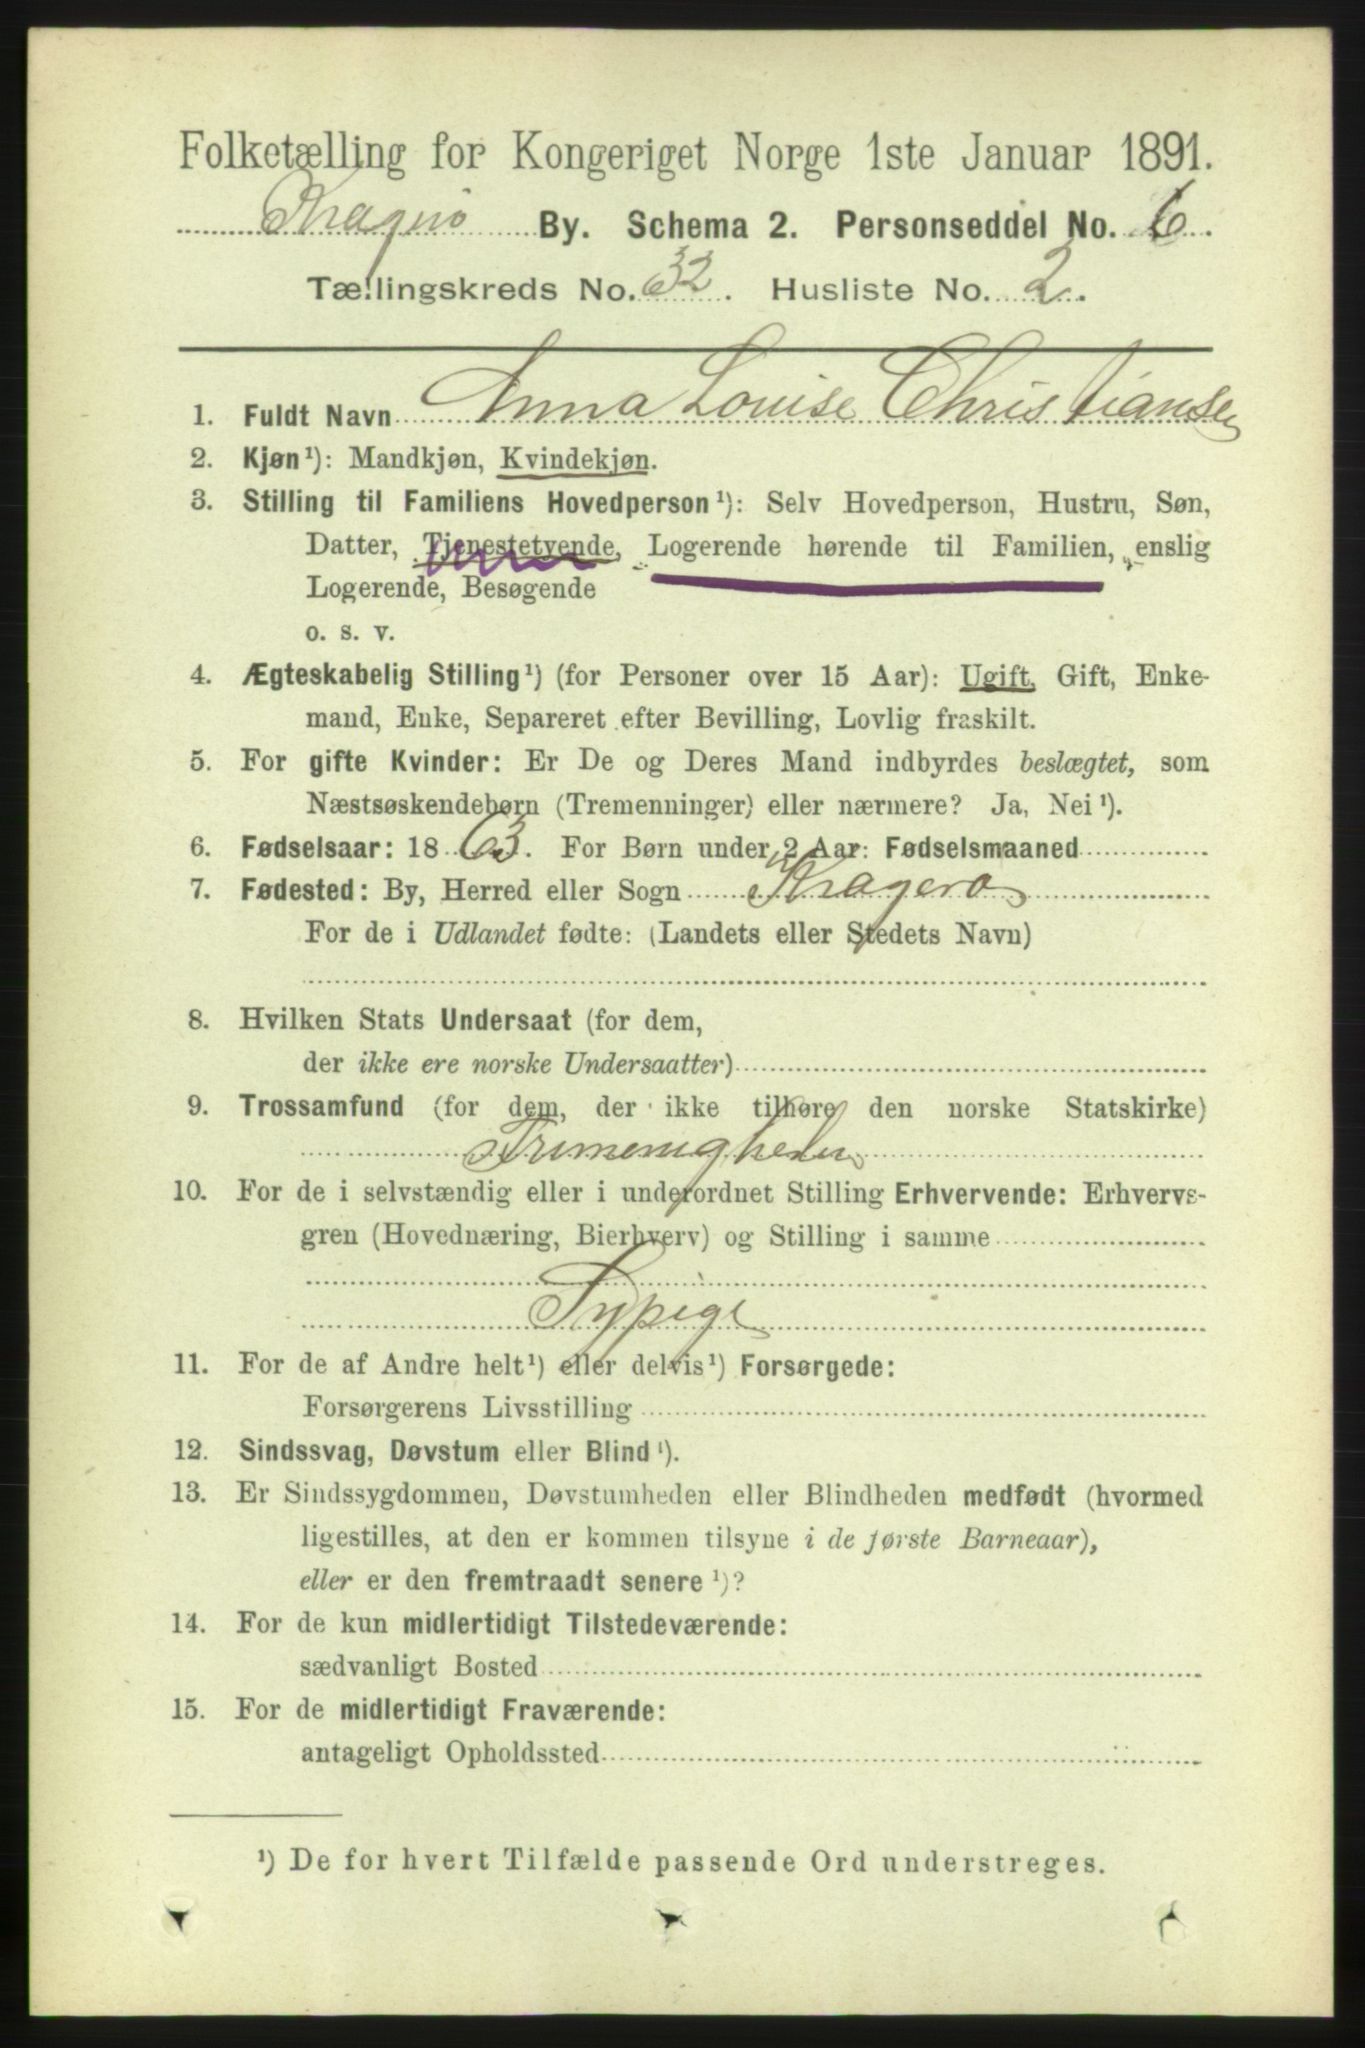 Folketælling for Kongeriget Norge 1ste Januar 1891.
Kragerø By. Schema 2. Personseddel No. 6.
Tællingskreds No. 32. Husliste No. 2.
1. Fuldt Navn Anna Louise Christiansen
2. Kjøn¹): Mandkjøn, Kvindekjøn.
3. Stilling til Familiens Hovedperson¹): Selv Hovedperson, Hustru, Søn,
Datter, Tjenestetyende, Logerende hørende til Familien, enslig
Logerende, Besøgende
o. s. v.
4. Ægteskabelig Stilling¹) (for Personer over 15 Aar): Ugift, Gift, Enke-
mand, Enke, Separeret efter Bevilling, Lovlig fraskilt.
5. For gifte Kvinder: Er De og Deres Mand indbyrdes beslægtet, som
Næstsøskendebørn (Tremenninger) eller nærmere? Ja, Nei¹).
6. Fødselsaar: 1863. For Børn under 2 Aar: Fødselsmaaned
7. Fødested: By, Herred eller Sogn Kragerø
For de i Udlandet fødte: (Landets eller Stedets Navn)
8. Hvilken Stats Undersaat (for dem,
der ikke ere norske Undersaatter)
9. Trossamfund (for dem, der ikke tilhøre den norske Statskirke)
Frimenigheden
10. For de i selvstændig eller i underordnet Stilling Erhvervende: Erhvervs-
gren (Hovednæring, Bierhverv) og Stilling i samme
Sypige
11. For de af Andre helt¹) eller delvis¹) Forsørgede:
Forsørgerens Livsstilling
12. Sindssvag, Døvstum eller Blind¹).
13. Er Sindssygdommen, Døvstumheden eller Blindheden medfødt (hvormed
ligestilles, at den er kommen tilsyne i de første Barneaar),
eller er den fremtraadt senere¹)?
14. For de kun midlertidigt Tilstedeværende:
sædvanligt Bosted
15. For de midlertidigt Fraværende:
antageligt Opholdssted
¹) De for hvert Tilfælde passende Ord understreges.